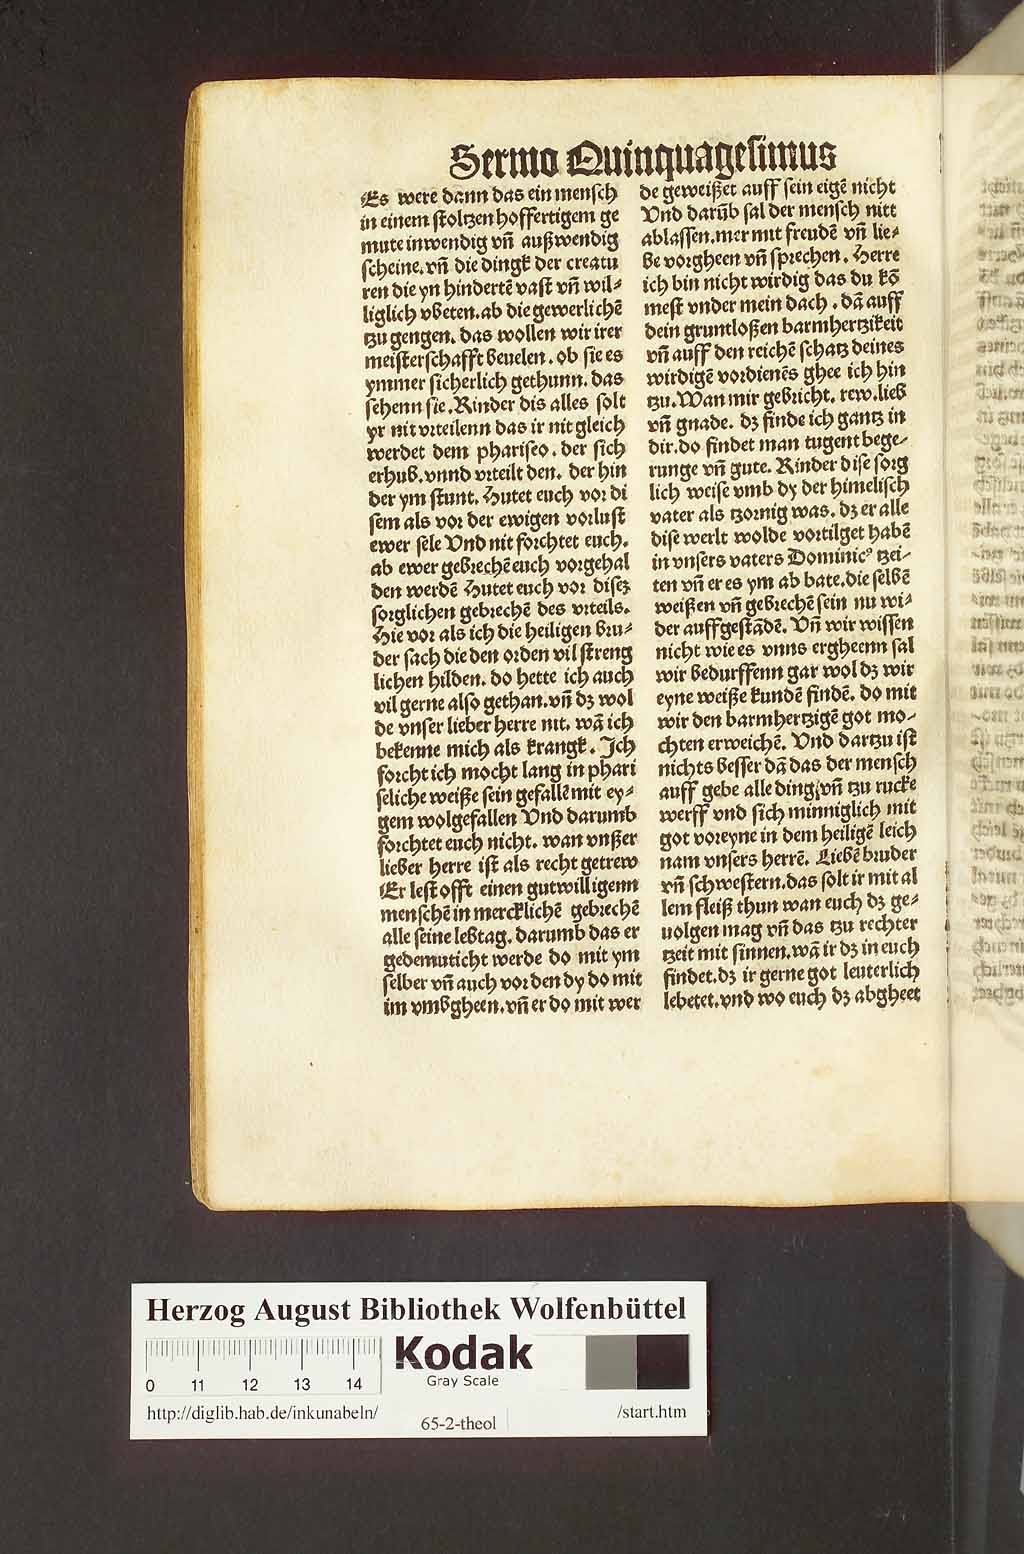 Sermo Quinquagesimus
Es were dann das ein mensch
in einem stoltzen hoffertigem ge
mute inwendig vñ außwendig
scheine. vñ die dingk der creatu
ren die yn hindertē vast vñ wil⸗
liglich vbeten. ab die gewerlichē
tzu gengen. das wollen wir irer
meisterschafft beuelen. ob sie es
ymmer sicherlich gethunn. das
sehenn sie. Kinder dis alles solt
yr nit vrteilenn das ir nit gleich
werdet dem phariseo. der sich
erhub. vnnd vrteilt den. der hin
der ym stunt. Hutet euch vor di
sem als vor der ewigen vorlust
ewer sele Vnd nit forchtet euch.
ab ewer gebrechē euch vorgehal
den werdē Hutet euch vor disez
sorglichen gebrechē des vrteils.
Hie vor als ich die heiligen bru⸗
der sach die den orden vil streng
lichen hilden. do hette ich auch
vil gerne also gethan. vñ dz wol
de vnser lieber herre nit. wā ich
bekenne mich als krangk. Ich
forcht ich mocht lang in phari
seliche weiße sein gefallē mit ey⸗
gem wolgefallen Vnd darumb
forchtet euch nicht. wan vnßer
lieber herre ist als recht getrew
Er lest offt einen gutwilligenn
menschē in mercklichē gebrechē
alle seine lebtag. darumb das er
gedemuticht werde do mit ym
selber vñ auch vor den dy do mit
im vmbgheen. vñ er do mit wer
de geweißet auff sein eigē nicht
Vnd darūb sal der mensch nitt
ablassen. mer mit freudē vñ lie⸗
be vorgheen vñ sprechen. Herre
ich bin nicht wirdig das du kō
mest vnder mein dach. dā auff
dein gruntloßen barmhertzikeit
vñ auff den reichē schatz deines
wirdigē vordienēs ghee ich hin
tzu. Wan mir gebricht. rew. lieb
vñ gnade. dz finde ich gantz in
dir. do findet man tugent bege⸗
runge vñ gute. Kinder dise sorg
lich weise vmb dy der himelisch
vater als tzornig was. dz er alle
dise werlt wolde vortilget habē
in vnsers vaters Dominicꝰ tzei⸗
ten vñ er es ym ab bate. die selbē
weißen vñ gebrechē sein nu wi⸗
der auffgestādē. Vñ wir wissen
nicht wie es vnns ergheenn sal
wir bedurffenn gar wol dz wir
eyne weiße kundē findē. do mit
wir den barmhertzigē got mo⸗
chten erweichē. Vnd dartzu ist
nichts besser dā das der mensch
auff gebe alle ding. vñ tzu rucke
werff vnd sich minniglich mit
got voreyne in dem heiligē leich
nam vnsers herrē. Liebē bruder
vñ schwestern. das solt ir mit al
lem fleiß thun wan euch dz ge⸗
uolgen mag vñ das tzu rechter
tzeit mit sinnen. wā ir dz in euch
findet. dz ir gerne got leuterlich
lebetet. vnd wo euch dz abgheet
Herzog August Bibliothek Wolfenbüttel
Kodak
Gray Scale
0 11 12 13 14
http://diglib.hab.de/inkunabeln/ 65-2-theol /start.htm